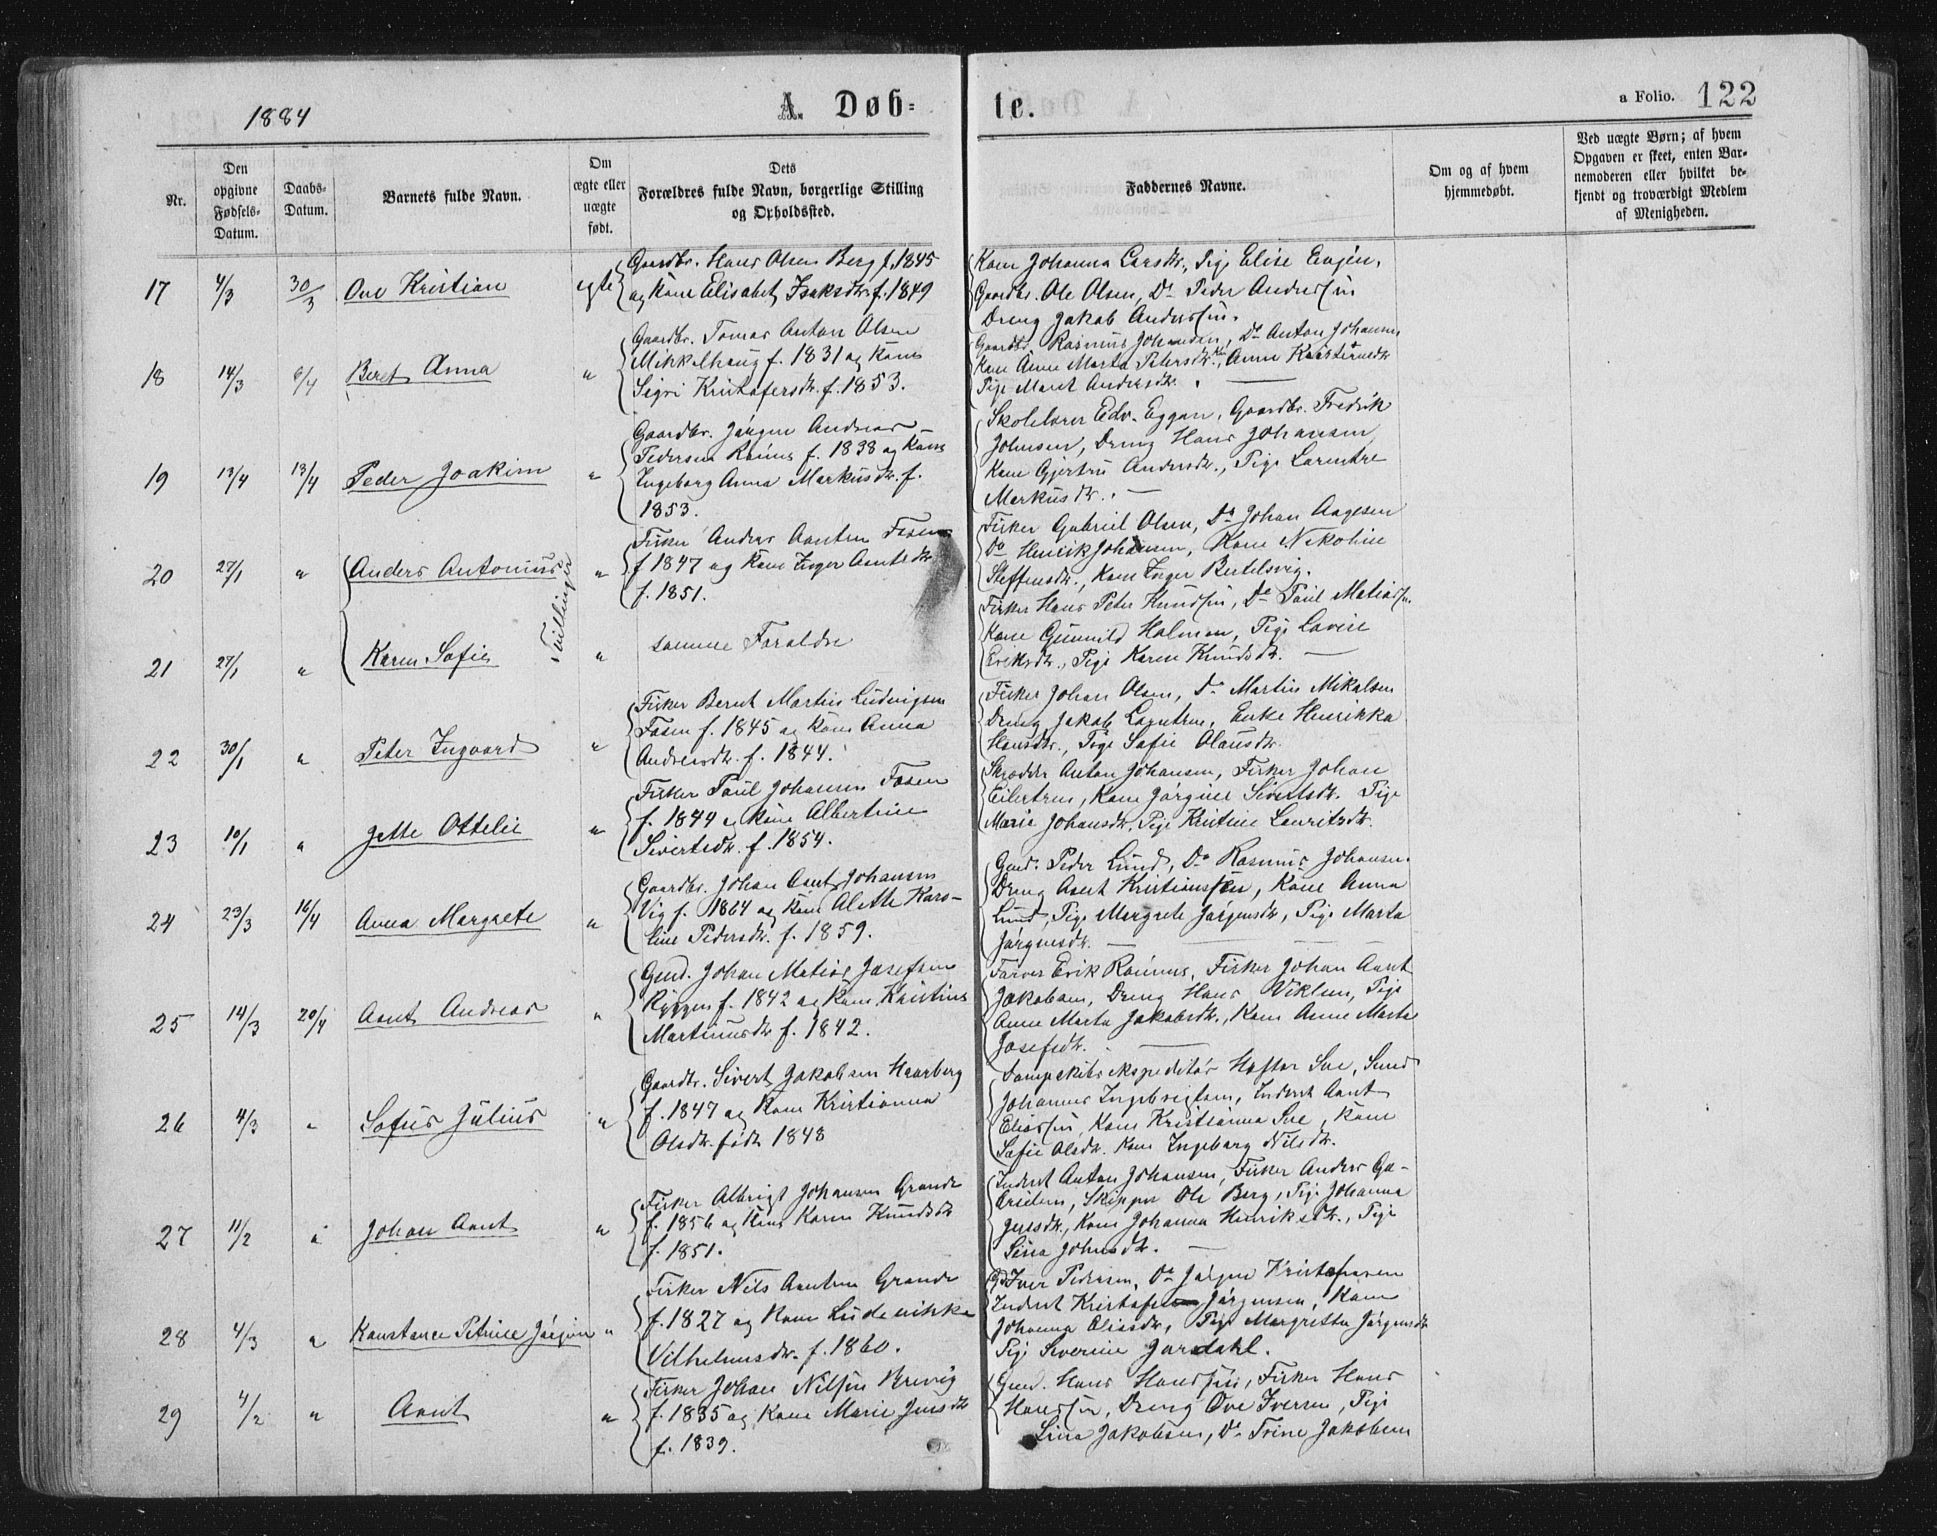 1884
A. Døb=
te.
a Folio. 122
Nr.
Den opgivne Fødsels-Datum.
Daabs-Datum.
Barnets fulde Navn.
Om ægte eller uægte født.
Dets Forældres fulde Navn, borgerlige Stilling og Opholdssted.
Faddernes Navne.
Om og af hvem hjemmedøbt.
Ved uægte Børn; af hvem Opgaven er skeet, enten Barnemoderen eller hvilket bekjendt og troværdigt Medlem af Menigheden.
17 4/3 30/3 Ove Kristian egte
Gaardbr. Hans Olsen Berg f. 1845
og Kone Elisabet Isaksdtr. f. 1849
Kone Johanna Larsdtr., Pige Elise
Gaardbr. Ole Olsen, Do Peder Andersen
Dreng Jakob Andersen.
18 14/3 6/4 Beret Anna "
Gaardbr. Tomas Anton Olsen
Mikkelhaug f. 1831 og Kone
Sigri Kristofersdtr. f. 1853.
Gaardbr. Rasmus Johansen, Do Anton Johansen
Kone Anne Marta Petersdtr., Anne
Pige Maret Andersdtr.
19 13/4 13/4 Peder Joakim "
Gaardbr. Jørgen Andreas
Pedersen f. 1838 og Kone
Ingeborg Anna Markusdtr. f.
1853.
Skolelærer Edv. Eggan, Gaardbr. Fredrik
Johnsen, Dreng Hans Johansen,
Kone Gjertru Andersdtr., Pige
Markusdtr.
20 27/1 " Anders Antonius "
Tvillinger
Fisker Anders Aantsen
f 1847 og Kone Inger Aantsdtr.
f. 1851.
Fisker Gabriel Olsen, Do Johan Aagesen
Do Henrik Johansen, Kone Nikoline
Steffensdtr., Kone Inger Bertelsvig.
21 27/1 " Karen Sofie "
samme Forældre
Fisker Hans Peter Knudsen, Do Paul Matiass.
Kone Gunnild Holmen, Pige Lovise
Eriksdtr., Pige Karen Knudsdtr.
22 30/1 " Peter Ingvard "
Fisker Bernt Martin Ludvigsen
Fosen f. 1845 og Kone Anna
Andreasdtr. f. 1844.
Fisker Johan Olsen, Do Martin Mikalsen
Dreng Jakob Enke Henrikka
Hansdtr., Pige Sofie Olausdtr.
23 10/1 " Jette Ottelie "
Fisker Paul Johansen Fosen
f. 1844 og Kone Albertine
Sivertsdtr. f. 1854.
Skrædder Anton Johansen, Fisker Johan
Eilertsen, Kone Jørgine Sivertsdtr. Pige
Marie Johansdtr. Pige Kristine Lauritsdtr.
24 23/3 16/4 Anna Margrete "
Gaardbr. Johan Aant Johansen
Vig f. 1864 og Kone Alette Karo-
line Pedersdtr. f. 1859.
Gmd. Peder Lund, Do Rasmus Johansen.
Dreng Aant Kristiansen, Kone Anna
Lund, Pige Margrete Jørgensdtr., Pige Marta
Jørgensdtr.
25 14/3 20/4 Aant Andreas "
Gmd. Johan Matias Josefsen
Ryggen f. 1842 og Kone Kristine
Martinusdtr. f. 1842.
Farver Erik Fisker Johan Aant
Jakobsen, Dreng Hans Viklem, Pige
Anne Marta Jakobsdtr., Kone Anne Marta
Josefsdtr.
26 4/3 " Sofus Julius "
Gaardbr. Sivert Jakobsen Haarberg
f. 1847 og Kone Kristianna
Olsdtr. født 1848
Dampskibsekspeditør
Johannes Ingebrigtsen, Inderst Aant
Eliassen, Kone Kristianna Kone
Sofie Olsdtr. Kone Ingeborg Nilsdtr.
27 11/2 " Johan Aant "
Fisker Albrigt Johansen Grande
f. 1856 og Kone Karen Knudsdtr
f. 1851.
Inderst Anton Johansen, Fisker Anders
Skipper Ole Berg, Pige Johanna
Jensdtr., Kone Johanna Henriksdtr., Pige
Sina Johnsdtr.
28 4/3 " Konstance Petrine Jørgine "
Fisker Nils Aantsen Grande
f. 1827 og Kone Ludevikke
Vilhelmsdtr. f. 1860.
Iver Pedersen, Do Jørgen Kristofersen
Inderst Kristofer Jørgensen, Kone
Johanna Pige Margretta Jørgensdtr
Pige Severine Jørdahl.
29 4/2 " Aant "
Fisker Johan Nilsen Brevig
f. 1835 og Kone Marie Jensdtr
f. 1839.
Gmd. Hans Hansen, Fisker Hans
Hansen, Dreng Ove Iversen, Pige
Lina Jakobsen, Do Trine Jakobsen